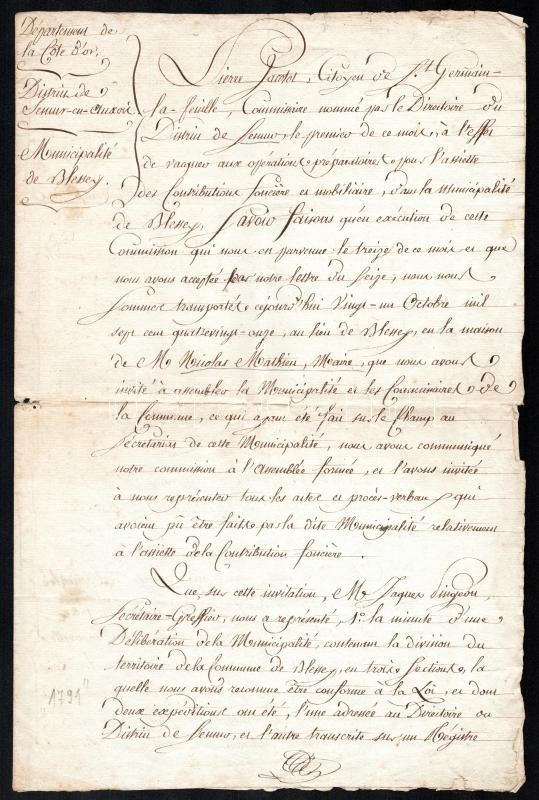 Département de
la Côte d'or.
District de
Semur-en-Auxois
Municipalité
de Blessey.
Pierre Jacotot, Citoyen de St. Germain-
la-feuille, Commissaire nommé par le Directoire du
District de Semur, le premier de ce mois, à l'effet
de vacquer aux opérations préparatoires pour l'assiette
des Contributions foncière et mobiliaire, dans la municipalité
de Blessey, Savoir faisons qu'en exécution de cette
Commission qui nous est parvenue le treize de ce mois et que
nous avons acceptée par notre lettre du Seize, nous nous
sommes transportés cejourd'hui vingt-un Octobre mil
sept cent quatrevingt-onze, au lieu de Blessey, en la maison
de M. Nicolas Mathieu, Maire, que nous avons
invité à assembler la Municipalité et les Commissaires de
la Commune, ce qui ayant été fait sur le Champ au
Secrétariat de cette Municipalité, nous avons communiqué
notre commission à l'Assemblée formée, et l'avons invitée
à nous représenter tous les actes et procès-verbaux qui
avoient pû être faits par la dite Municipalité relativement
à l'assiette de la Contribution foncière.
Que, sur cette invitation, M. Jaques Vingeon,
Secrétaire-Greffier, nous a représenté, 1º. la minute d'une
Délibération de la Municipalité, contenant la division du
territoire de la Commune de Blessey, en trois Sections, la
quelle nous avons reconnue être conforme à la Loi, et dont
deux expéditions ont été, l'une adressée au Directoire du
District de Semur, et l'autre transcrite sur un Régistre
"1791"